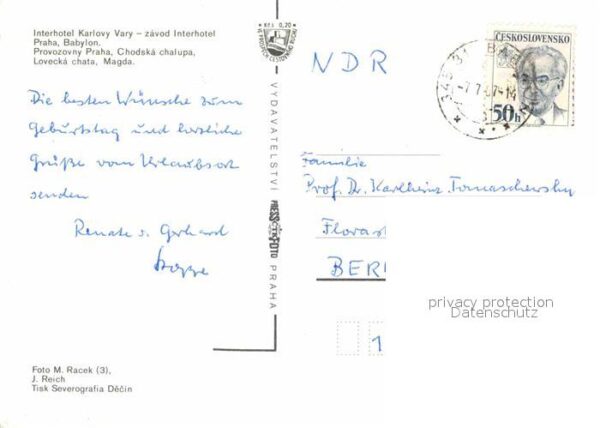 Interhotel Karlovy Vary – závod Interhotel
Praha, Babylon.
Provozovny Praha, Chodská chalupa,
Lovecká chata, Magda.
Kčs 0,70
ČESKOSLOVENSKO
50h
345 31 BA
-7.7.87-14
NDR
Die besten Wünsche zum
Geburtstag und herzliche
Grüße vom Urlaubsort
senden
Renate u. Gerhard
Hoppe
VYDAVATELSTVÍ
PRESSFOTO
PRAHA
Familie
Prof. Dr. Karlheinz Tomaschewsky
Floras
BER
1
privacy protection
Datenschutz
Foto M. Racek (3),
J. Reich
Tisk Severografia Děčín